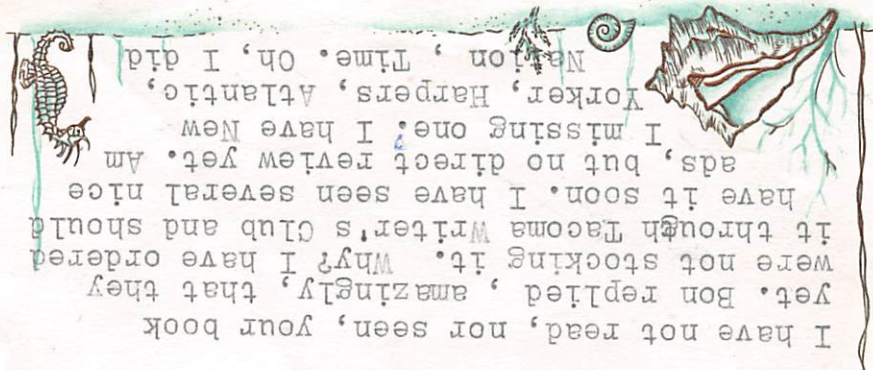 I have not read, nor seen, your book
yet. Bon replied , amazingly, that they
were not stocking it. Why? I have ordered
it through Tacoma Writer's Club and should
have it soon. I have seen several nice
ads, but no direct review yet. Am
I missing one. I have New
Yorker, Harpers, Atlantic,
Nation , Time. Oh, I did